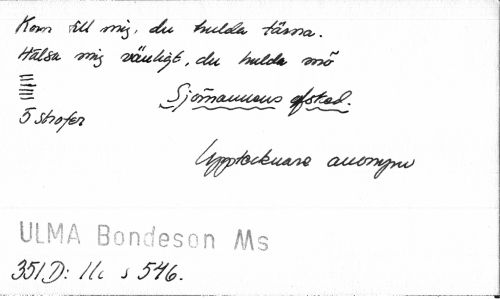 Kom till mig, du hulda tärna.
Hälsa mig vänligt, du hulda mö
5 strofer
Sjömannens afsked.
Upptecknare anonym
ULMA Bondeson Ms
351D: 11c s 546.